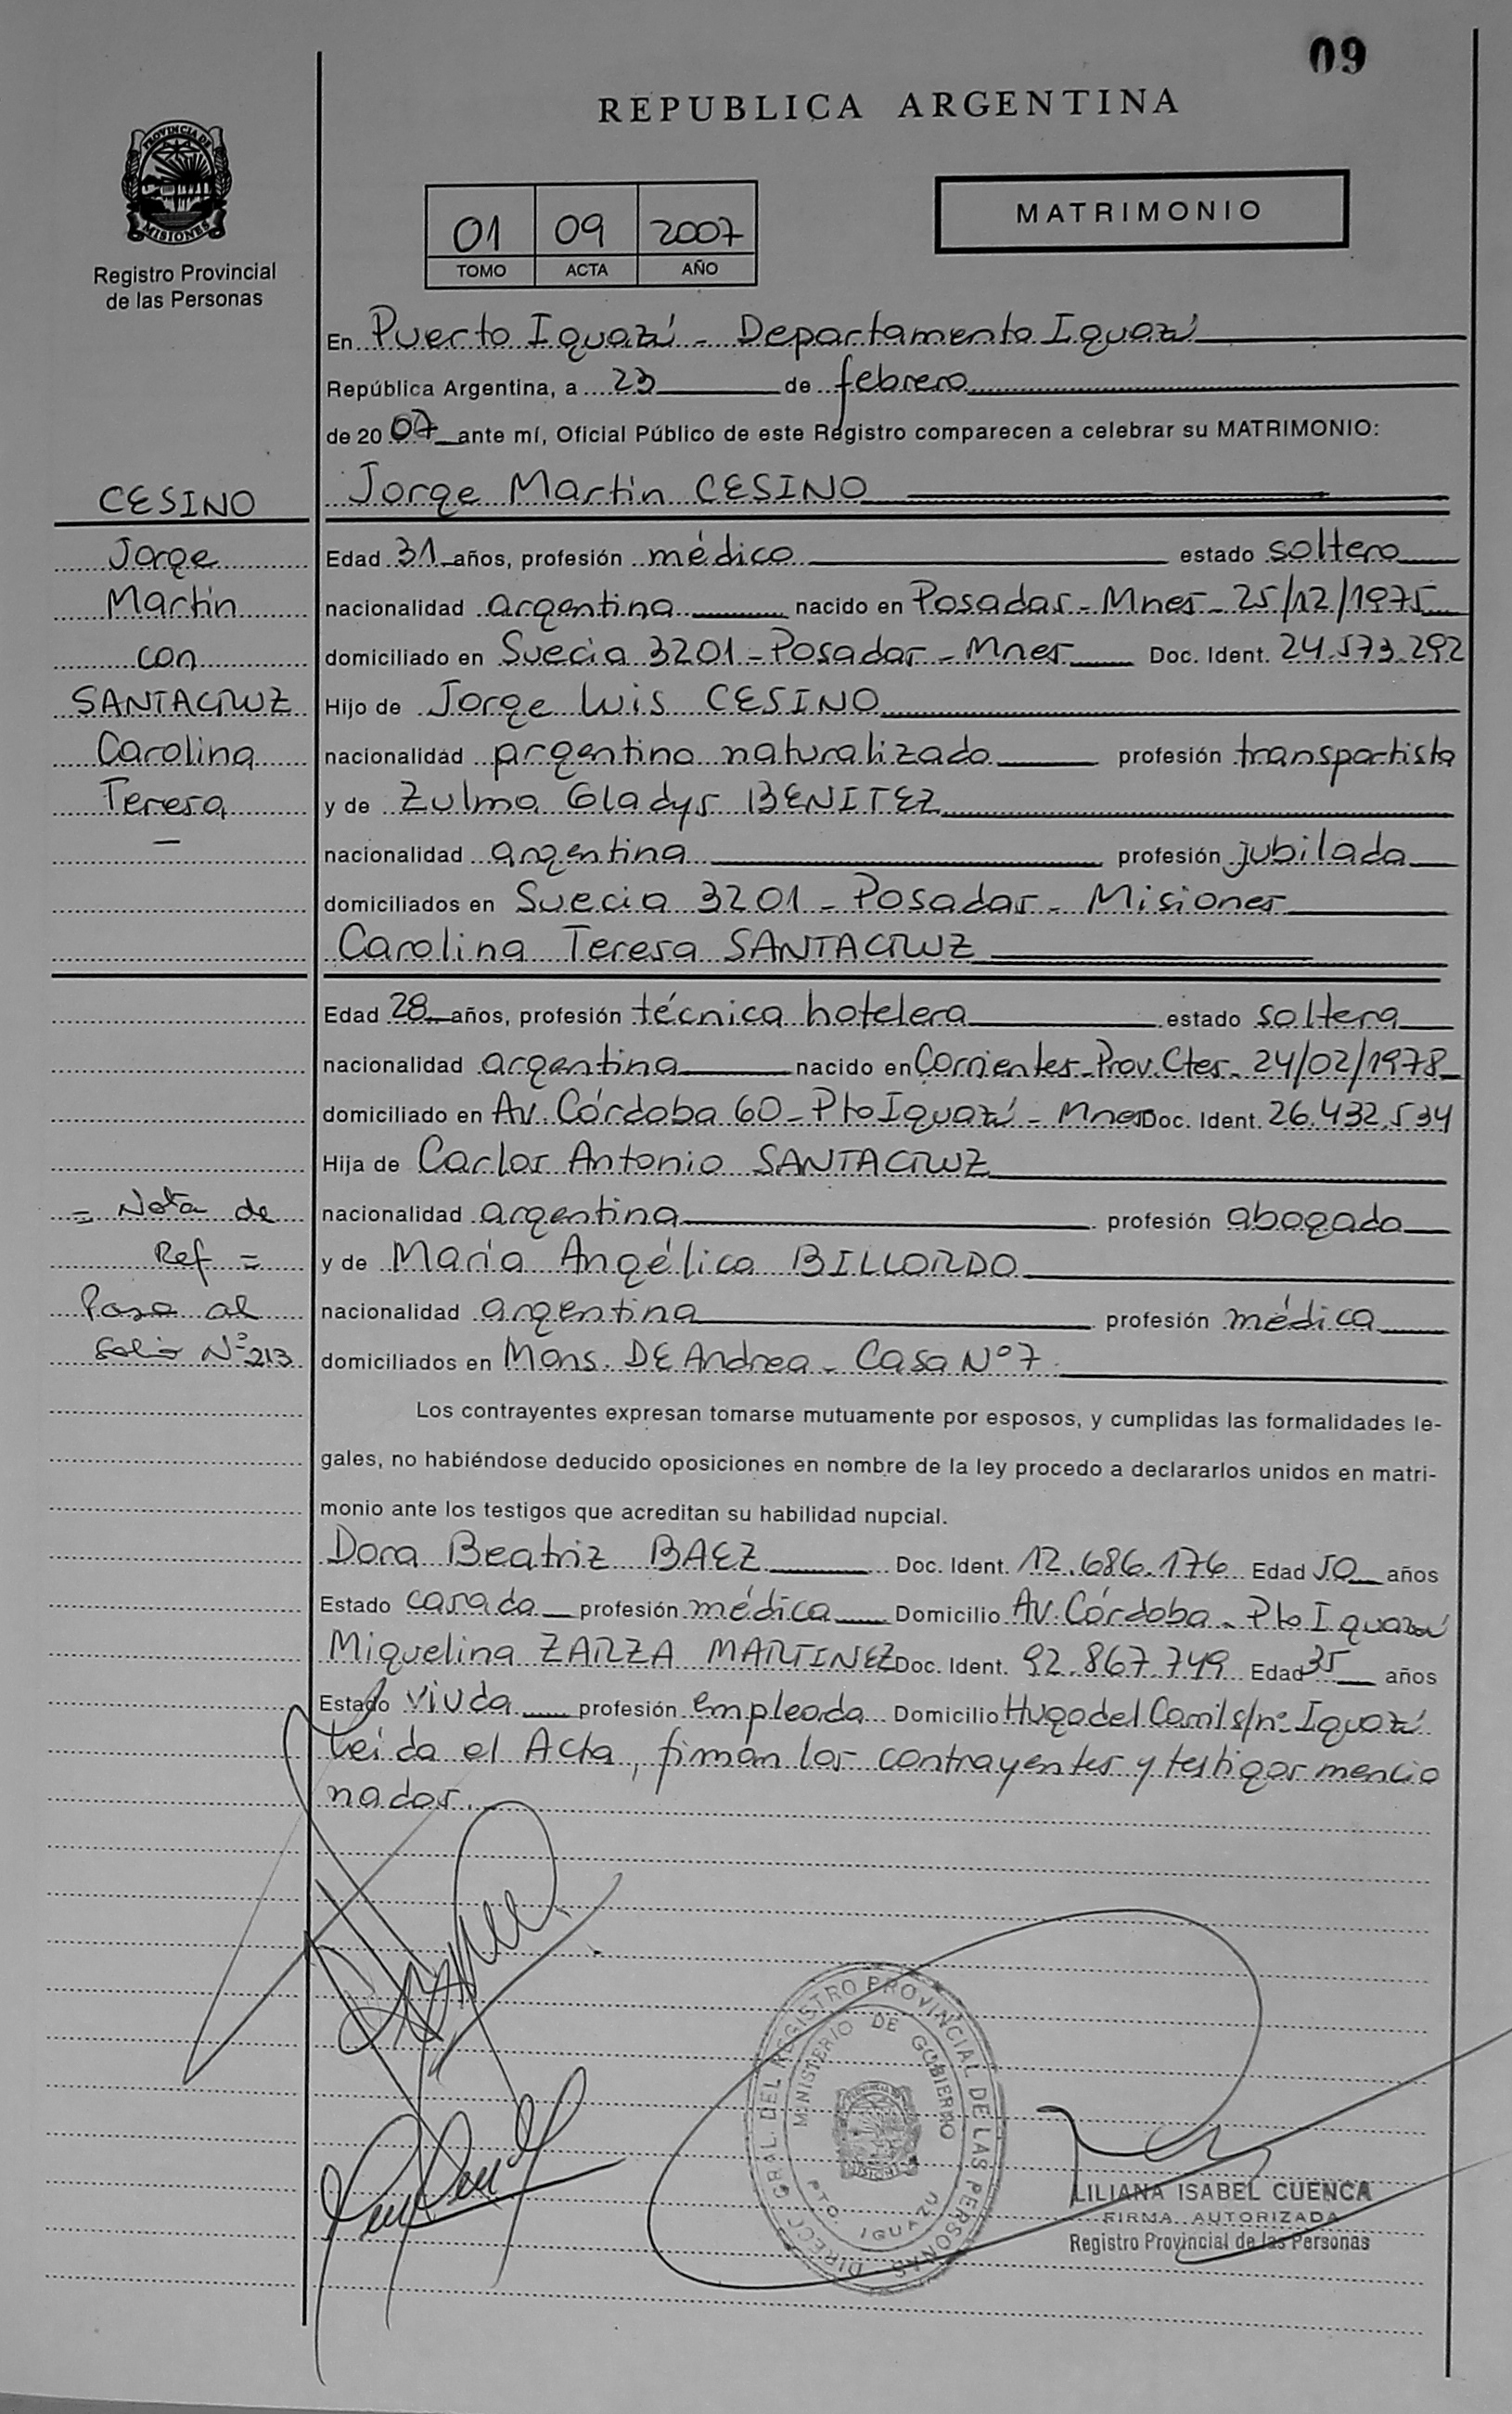 09
REPUBLICA ARGENTINA
PROVINCIA DE
MISIONES
Registro Provincial
de las Personas
01 09 2007
TOMO ACTA AÑO
MATRIMONIO
En Puerto Iguazú - Departamento Iguazú
República Argentina, a 23 de febrero
de 2007 ante mí, Oficial Público de este Registro comparecen a celebrar su MATRIMONIO:
CESINO
Jorge
Martín
con
SANTACRUZ
Carolina
Teresa
-
Jorge Martín CESINO
Edad 31 años, profesión médico estado soltero
nacionalidad argentina nacido en Posadas - Mnes - 25/12/1975
domiciliado en Suecia 3201 - Posadas - Mnes Doc. Ident. 24.573.292
Hijo de Jorge Luis CESINO
nacionalidad argentino naturalizado profesión transportista
y de Zulma Gladys BENITEZ
nacionalidad argentina profesión jubilada
domiciliados en Suecia 3201 - Posadas - Misiones
Carolina Teresa SANTACRUZ
Edad 28 años, profesión técnica hotelera estado soltera
nacionalidad argentina nacido en Corrientes - Prov. Ctes - 24/02/1978
domiciliado en Av. Córdoba 60 - Pto Iguazú - Mnes Doc. Ident. 26.432.534
Hija de Carlos Antonio SANTACRUZ
nacionalidad argentina profesión abogado
y de María Angélica BILLORDO
nacionalidad argentina profesión médica
domiciliados en Mons. DE Andrea - Casa Nº 7
= Nota de
Ref =
Pasa al
folio Nº 213
Los contrayentes expresan tomarse mutuamente por esposos, y cumplidas las formalidades le-
gales, no habiéndose deducido oposiciones en nombre de la ley procedo a declararlos unidos en matri-
monio ante los testigos que acreditan su habilidad nupcial.
Dora Beatriz BAEZ Doc. Ident. 12.686.176 Edad 50 años
Estado casada profesión médica Domicilio Av. Córdoba - Pto Iguazú
Miguelina ZARZA MARTINEZ Doc. Ident. 92.867.749 Edad 35 años
Estado viuda profesión empleada Domicilio Hugo del Carril s/nº Iguazú
Leída el Acta, firman los contrayentes y testigos mencio
nados.
DIRECC. GRAL. DEL REGISTRO PROVINCIAL DE LAS PERSONAS
MINISTERIO DE GOBIERNO
PTO. IGUAZU
LILIANA ISABEL CUENCA
FIRMA AUTORIZADA
Registro Provincial de las Personas